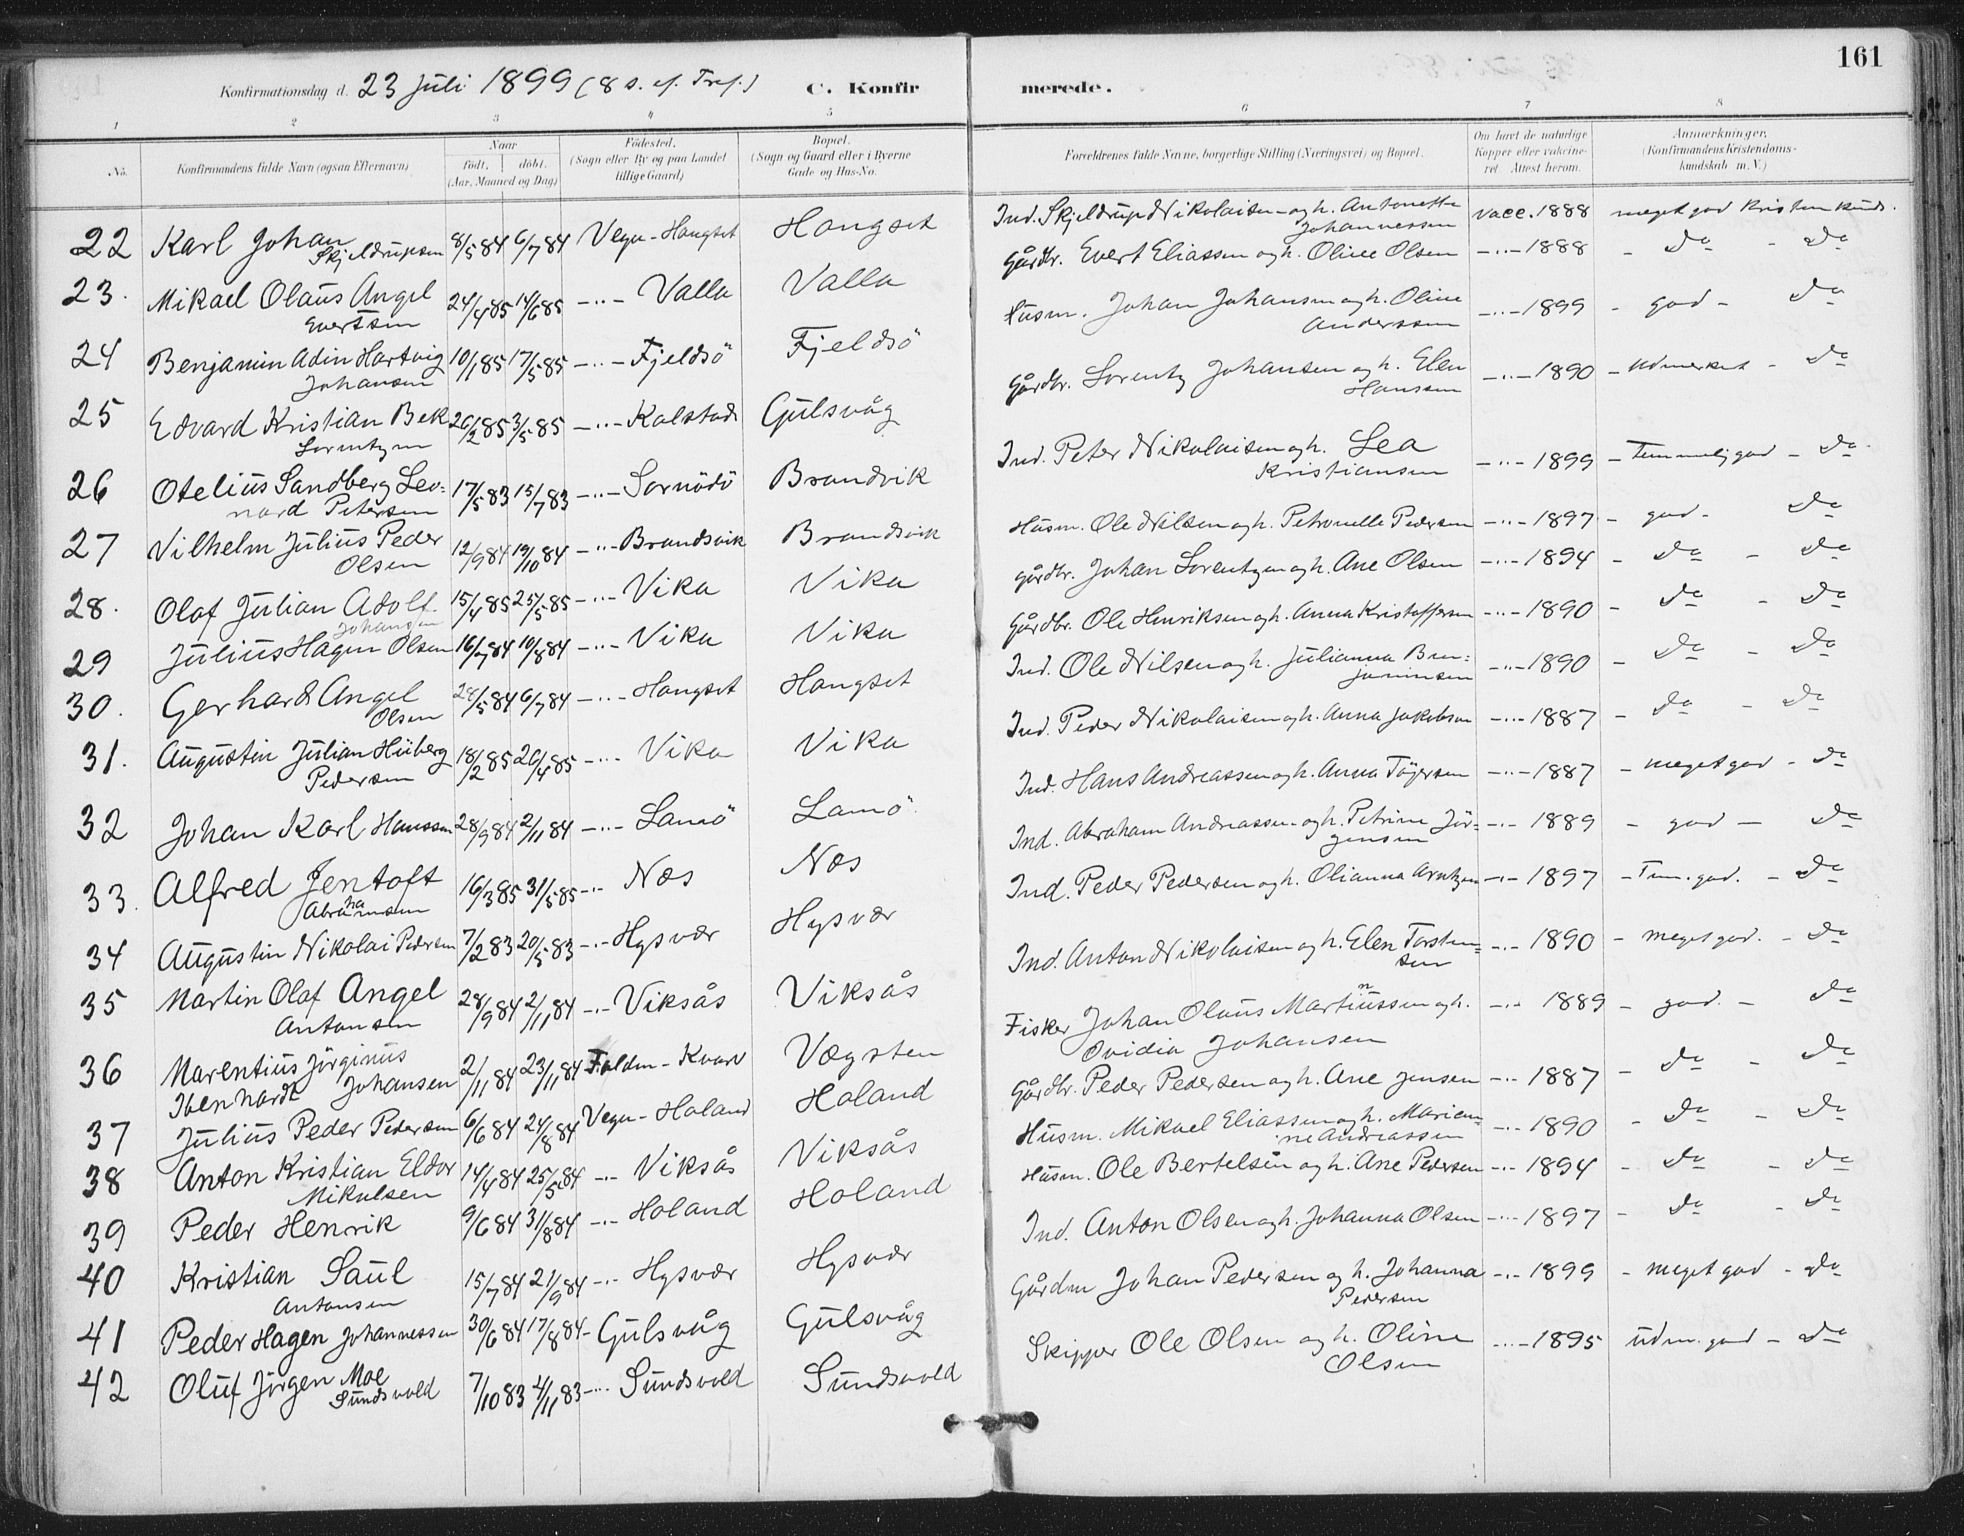 161
Konfirmationsdag d. 23 Juli 1899 (8 s. ef. Tref.) C. Konfirmerede.
1 2 3 4 5 6 7 8
No. Konfirmandens fulde Navn (ogsaa Efternavn) Naar født, døbt. (Aar, Maaned og Dag) Fødested. (Sogn eller By og paa Landet tillige Gaard) Bopæl. (Sogn og Gaard eller i Byerne Gade og Hus-No. Forældrenes fulde Navne, borgerlige Stilling (Næringsvei) og Bopæl. Om havt de naturlige Kopper eller vakcineret. Attest herom. Anmærkninger. (Konfirmandens Kristendomskundskab m. V.)
22 Karl Johan Skjeldrupsen 8/5 84 6/7 84 Vega - Hongset Hongset Ind. Skjeldrup Nikolaisen og h. Antonette Johannessen vacc. 1888 meget god kristen kunds.
23. Mikael Olaus Angel Evertsen 24/4 85 14/6 85 -..- Valla Valla Gårdbr. Evert Eliassen og h. Oline Olsen -..- 1888 - do - do
24 Benjamin Adin Hartvig Johansen 10/1 85 17/5 85 -..- Fjeldsö Fjeldsö Husm. Johan Johansen og h. Oline Anderssen -..- 1899 - god - do
25 Edvard Kristian Bek Lorentzen 26/2 85 3/5 85 -..- Kolstad Gulsvåg Gårdbr. Lorentz Johansen og h. Elen Hanssen -..- 1890 - udmerket - do
26 Otelius Sandberg Leonard Petersen 17/5 83 15/7 83 -..- Sornödö Brandvik Ind. Peter Nikolaisen og h. Lea Kristiansen -..- 1899 - Temmelig god - do
27 Vilhelm Julius Peder Olsen 12/9 84 19/10 84 -..- Brandsvik Brandsvik Husm. Ole Nilsen og h. Petronelle Pedersen -..- 1897 - god - do
28. Olaf Julian Adolf Johansen 15/4 85 25/5 85 -..- Vika Vika Gårdbr. Johan Lorentzen og h. Ane Olsen -..- 1894 - do - do
29 Julius Hagen Olsen 16/7 84 10/8 84 -..- Vika Vika Gårdbr. Ole Henriksen og h. Anna Kristoffersen -..- 1890 - do - do
30. Gerhard Angel Olsen 28/5 84 6/7 84 -..- Hongset Hongset Ind. Ole Nilsen og h. Julianna Benjaminsen -..- 1890 - do - do
31. Augustin Julian Hiberg Pedersen 18/2 85 26/4 85 -..- Vika Vika Ind. Peder Nikolaisen og h. Anna Jakobsen -..- 1887 - do - do
32 Johan Karl Hanssen 28/9 84 2/11 84 -..- Lamö Lamö Ind. Hans Andreassen og h. Anna Töjersen -..- 1887 - meget god - do
33. Alfred Jentoft Abrahamsen 16/3 85 31/5 85 -..- Næs Næs Ind. Abraham Andreassen og h. Petrine Jörgensen -..- 1889 - god - do
34 Augustin Nikolai Pedersen 7/2 83 20/5 83 -..- Hysvær Hysvær Ind. Peder Pedersen og h. Olianna Arntzen -..- 1897 - Tem. god. - do
35 Martin Olaf Angel Antonsen 28/9 84 2/11 84 -..- Viksås Viksås Ind. Anton Nikolaisen og h. Elen Torstensen -..- 1890 - meget god. - do
36 Marentius Jörginus Ibenhardt Johansen 2/11 84 23/11 84 Foldm - Kvarv Vægsten Fisker Johan Olaus Martinussen og h. Ovidia Johansen -..- 1889 - god. - do
37 Julius Peder Pedersen 6/6 84 24/8 84 Vega - Holand Holand Gårdbr. Peder Pedersen og h. Ane Jensen -..- 1887 - do - do
38 Anton Kristian Eldor Mikalsen 14/4 84 25/5 84 -..- Viksås Viksås Husm. Mikael Eliassen og h. Marianne Andreassen -..- 1890 - do - do
39 Peder Henrik 9/6 84 31/8 84 -..- Holand Holand Husm. Ole Bertelsen og h. Ane Pedersen -..- 1894 - do - do
40 Kristian Saul Antonsen 15/7 84 21/9 84 -..- Hysvær Hysvær Ind. Anton Olsen og h. Johanna Olsen -..- 1897 - do - do
41 Peder Hagen Johannessen 30/6 84 17/8 84 - Gulsvåg Gulsvåg Gårdm Johan Pedersen og h. Johanna Pedersen -..- 1899 - meget god - do
42 Oluf Jörgen Moe Sundsvold 7/10 83 4/11 83 -..- Sundsvold Sundsvold Skipper Ole Olsen og h. Oline Olsen -..- 1895 udm. god - do